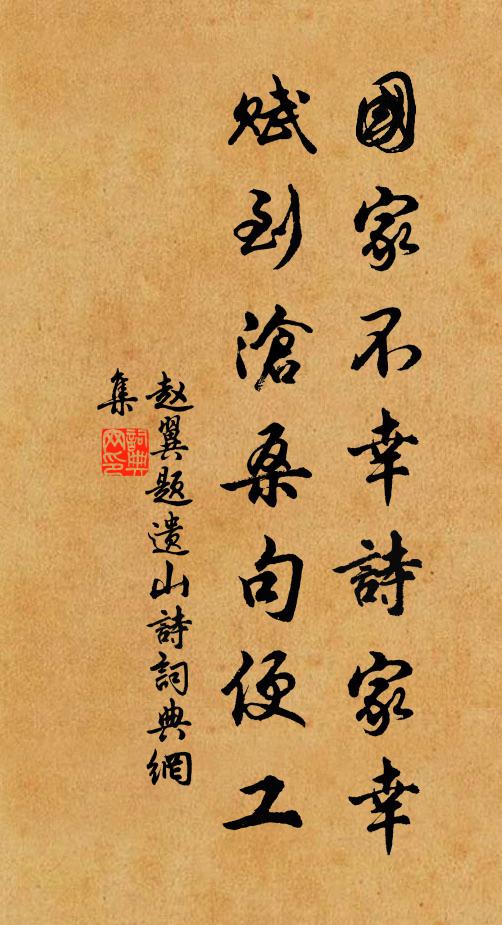 國家不幸詩家幸
賦到滄桑句便工
赵翼题遗山詩詞典網
集
詞典
网印